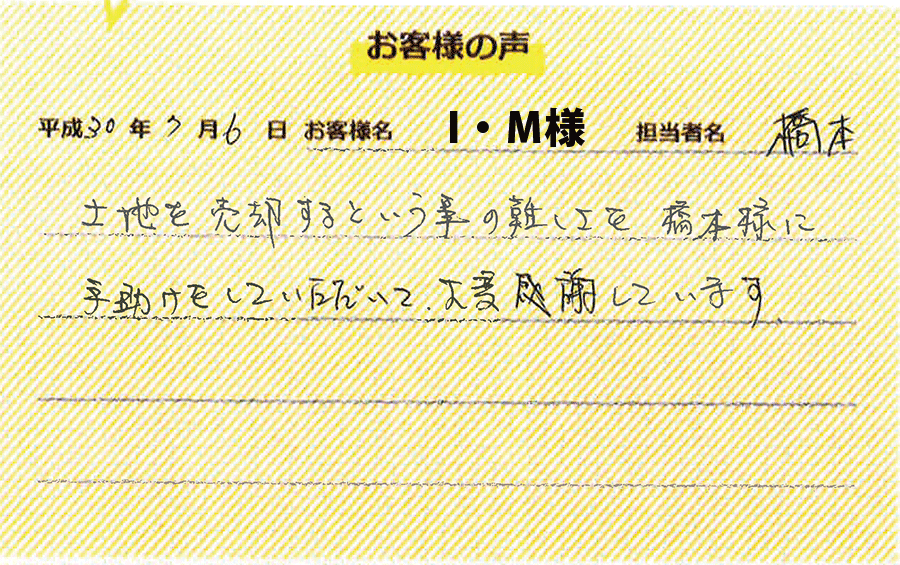 お客様の声
平成30年7月6日 お客様名 I・M様 担当者名 橋本
土地を売却するという事の難しさを橋本様に
手助けをしていただいて、大変感謝しています。